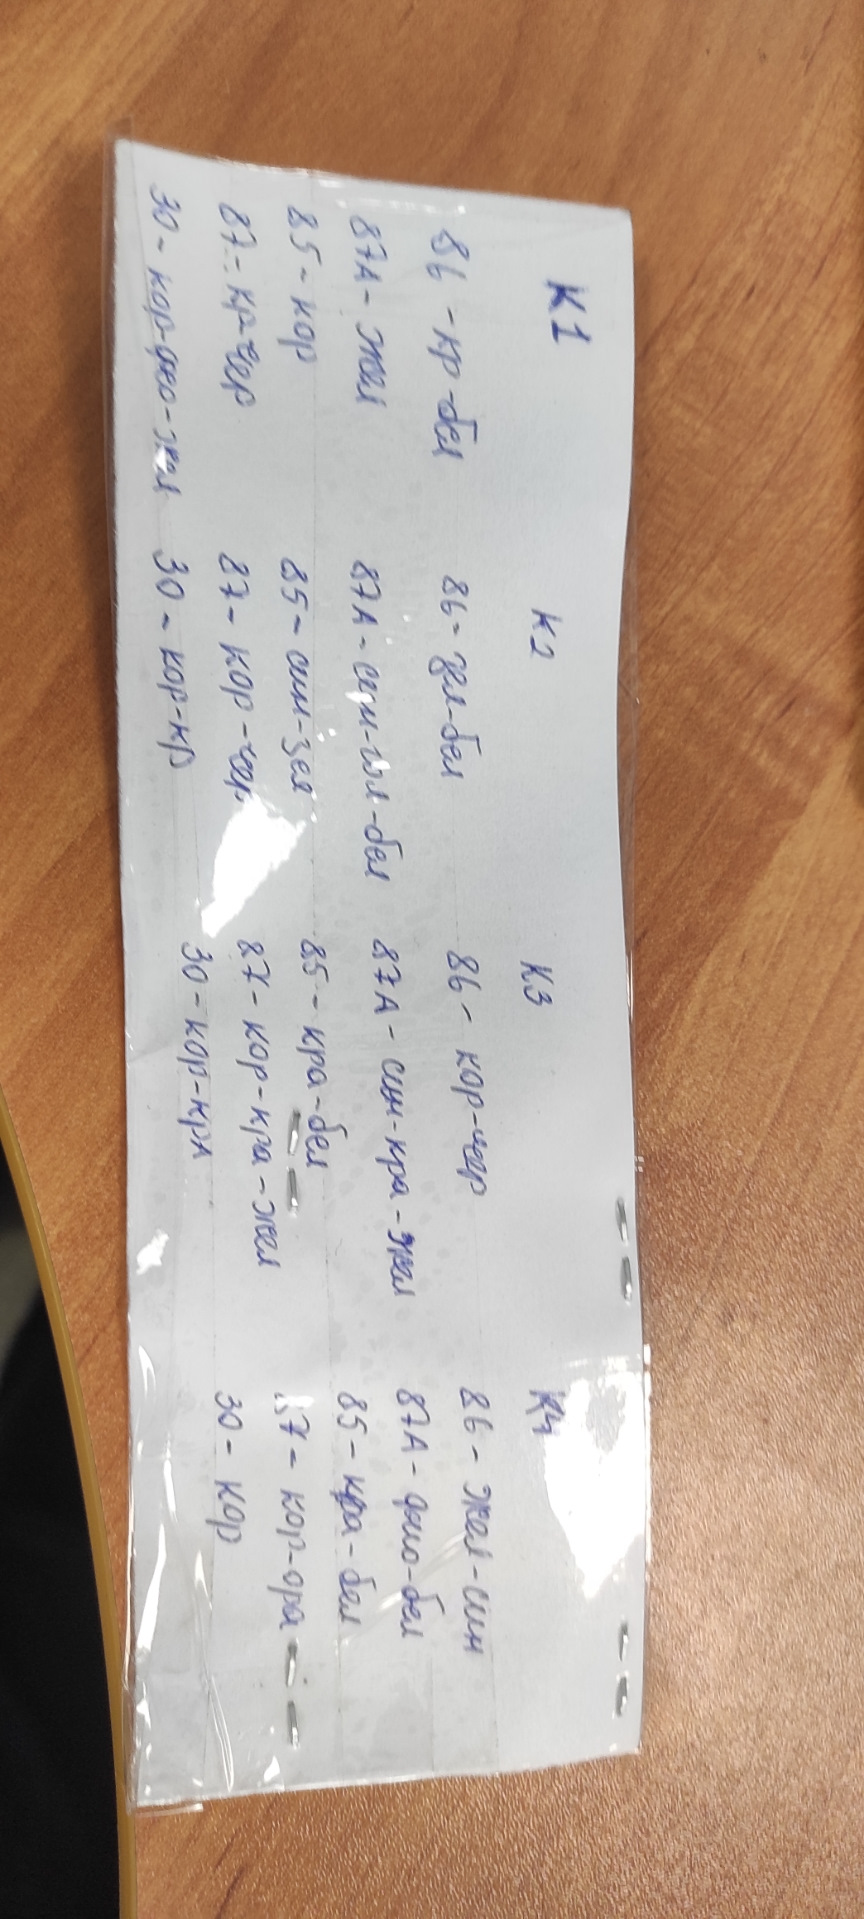 К1 К2 К3 К4
86 - кр-бел 86 - зел-бел 86 - кор-чер 86 - жел-син
87А - жел 87А - син-гол-бел 87А - син-кра-жел 87А - фио-бел
85 - кор 85 - син-зел 85 - кра-бел 85 - кра-бел
87 - кр-чер 87 - кор-чер 87 - кор-кра-жел 87 - кор-ора
30 - кор-фио-жел 30 - кор-кр 30 - кор-крл 30 - кор